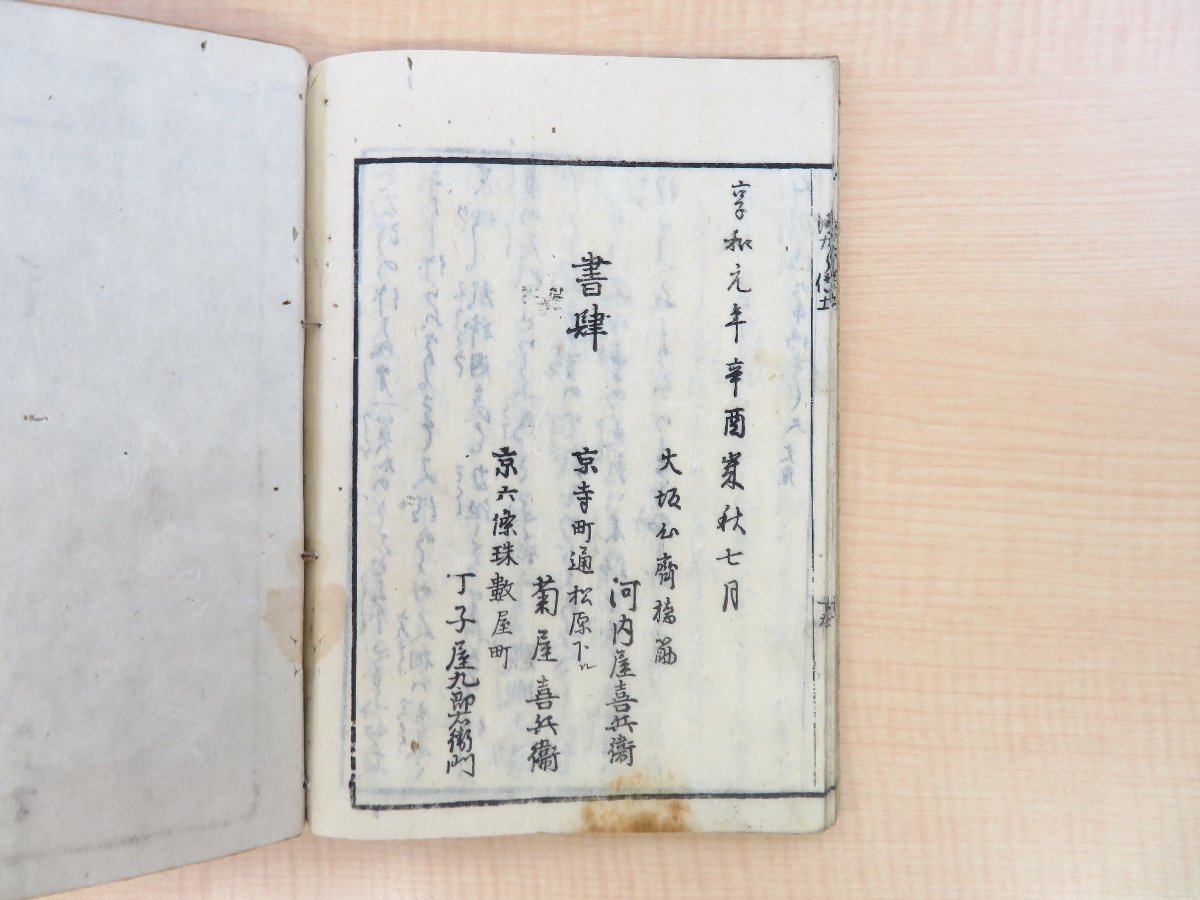 享和元年辛酉歳秋七月
書肆
大坂心齋橋筋
河内屋喜兵衞
京寺町通松原下ル
菊屋喜兵衞
京六條珠數屋町
丁子屋九郎右衛門